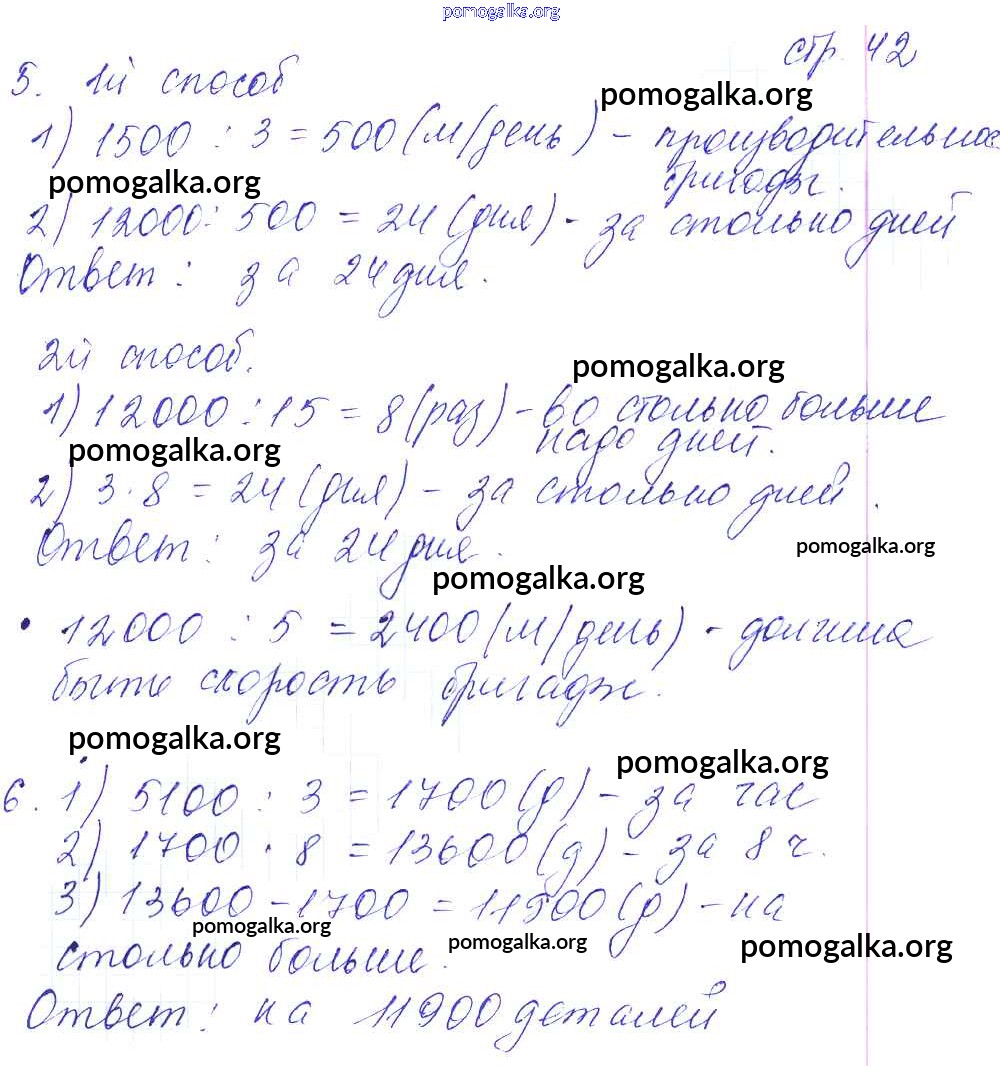 pomogalka.org
стр. 42
5. 1й способ
pomogalka.org
1) 1500 : 3 = 500 (м/день) - производительнос
бригады.
pomogalka.org
2) 12000 : 500 = 24 (дня) - за столько дней
Ответ: за 24 дня.
2й способ.
pomogalka.org
1) 12000 : 15 = 8 (раз) - во столько больше
надо дней.
pomogalka.org
2) 3 · 8 = 24 (дня) - за столько дней.
Ответ: за 24 дня.
pomogalka.org
pomogalka.org
• 12000 : 5 = 2400 (м/день) - должна
быть скорость бригады.
pomogalka.org
pomogalka.org
6. 1) 5100 : 3 = 1700 (д) - за час
2) 1700 · 8 = 13600 (д) - за 8 ч.
3) 13600 - 1700 = 11900 (д) - на
pomogalka.org
pomogalka.org
pomogalka.org
столько больше.
Ответ: на 11900 деталей